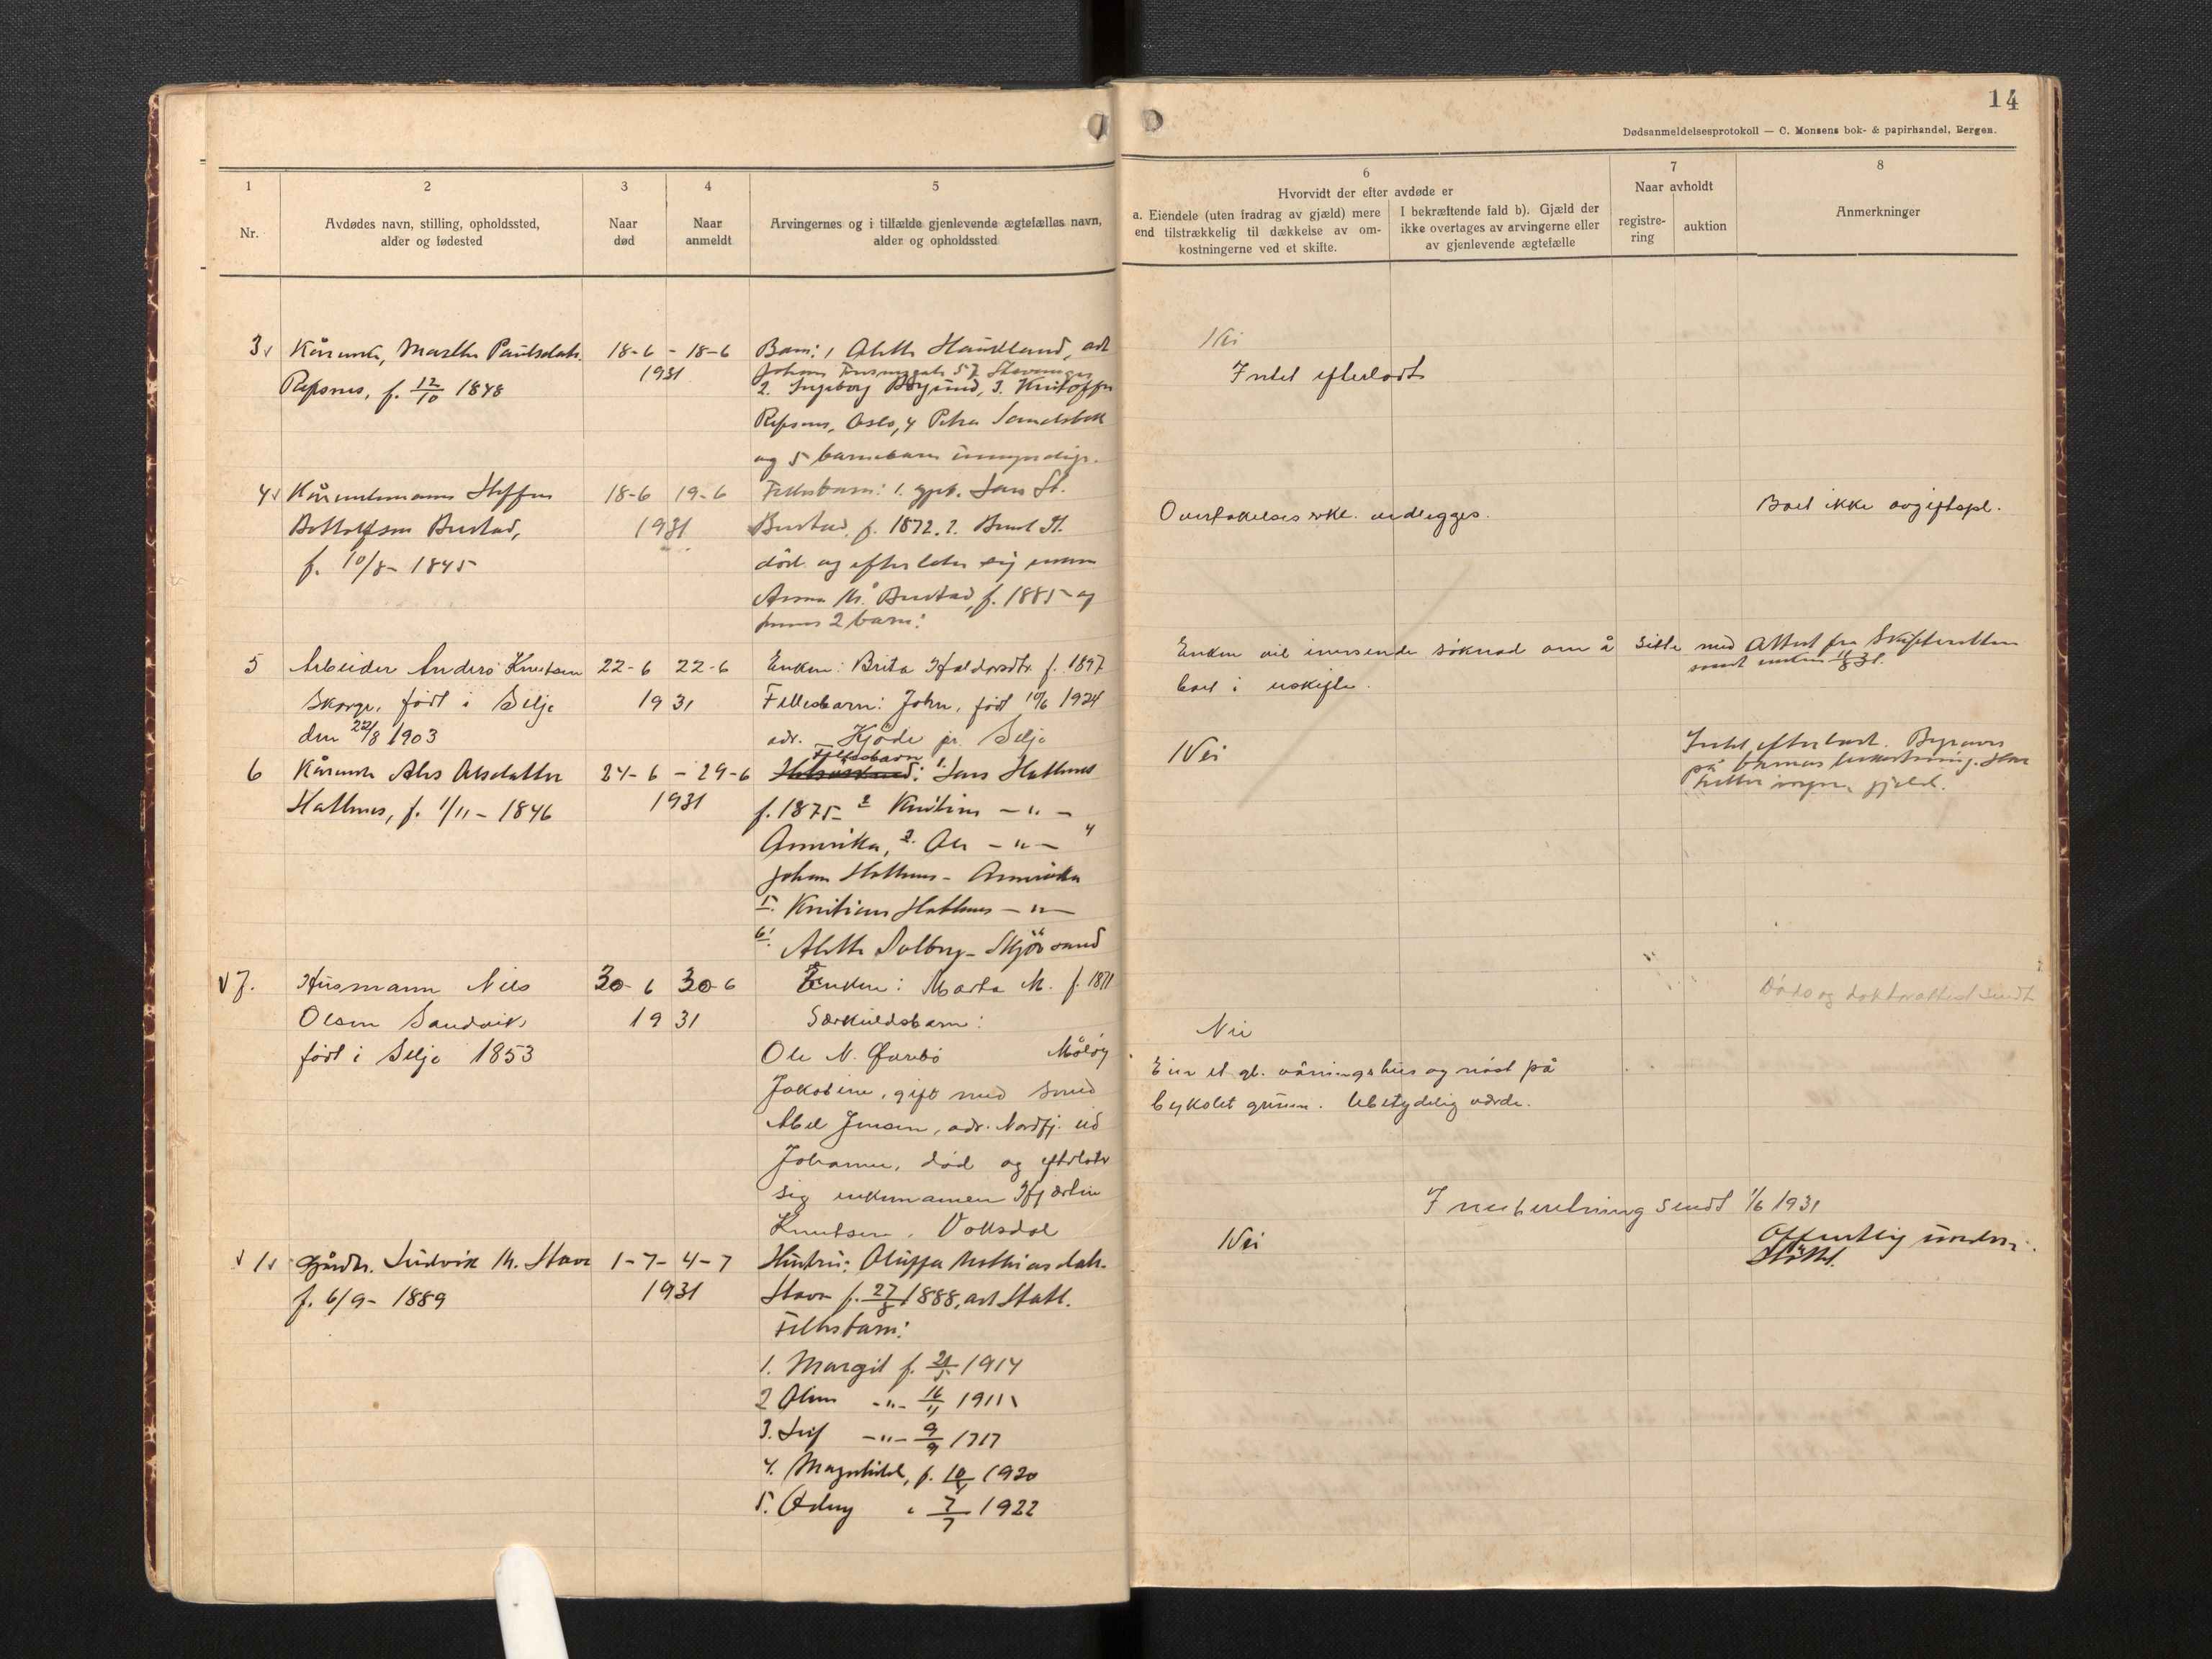 14
Dødsanmeldelsesprotokoll — C. Monsens bok- & papirhandel, Bergen.
1
Nr.
2
Avdødes navn, stilling, opholdssted,
alder og fødested
3
Naar
død
4
Naar
anmeldt
5
Arvingernes og i tilfælde gjenlevende ægtefælles navn,
alder og opholdssted
6
Hvorvidt der efter avdøde er
a. Eiendele (uten fradrag av gjæld) mere
end tilstrækkelig til dækkelse av om-
kostningerne ved et skifte.
I bekræftende fald b). Gjæld der
ikke overtages av arvingerne eller
av gjenlevende ægtefælle
7
Naar avholdt
registre-
ring
auktion
8
Anmerkninger
3
Kårenke, Marthe Paulsdatr.
Refsnes, f. 12/10 1848
18-6 - 18-6
1931
Barn: 1 Alette Haukland, adr
Johan
2. Ingeborg 3. Kristoffer
Refsnes, Oslo, 4 Petra Sandsbak
og 5 barnebarn umyndige.
Nei
Intet efterladt
4
Kårenkemann Steffen
Bottolfsen Brustad,
f. 10/8- 1845
18-6 19-6
1931
Fellesbarn: 1. Lars St.
Brustad, f. 1872. 2. St.
død og efterlater sig enken
Anna M. Brustad, f. 1885 og
2 barn:
Overtakelses erkl. vedlegges.
Boet ikke avgiftspl.
5
Arbeider Anders Knutsen
Skorge, født i Selje
den 22/8 1903
22-6 22-6
1931
Enken: Brita Haldorsdtr. f. 1897
Fellesbarn: John, født 10/6 1924
adr. Hjøde pr. Selje
Enken vil innsende søknad om å sitte med
boet i uskifte.
Attest fra Skifteretten
sendt enken 11/8 31.
6
Kårenke Alis Olsdatter
Hatlenes, f. 1/11- 1846
24-6 - 29-6
1931
Fellesbarn
1. Lars Hatlenes
f. 1875 2 Kristian -"-
Amerika, 3. Ole -"- 4
Johan Hatlenes - Amerika
5. Kristian Hatlenes -"-
6. Alette Solberg - Skjørsand
Nei
Intet efterladt.
på barnas bekostning. Har
heller ingen gjeld.
7.
Husmann Nils
Olsen Sandvik
født i Selje 1853
30-6 30-6
1931
Enken: Marta M. f. 1871
Særkuldsbarn:
Ole N. Måløy
Jakobine, gift med smed
Abel Jensen, adr. Nordfj. eid
Johanne, død og efterlater
sig enkemannen Hjartin
Knutsen, Vollsdal
Nei
Eier et gl. våningshus og nøst på
bykslet grunn. Ubetydelig værde.
Døds og doktorattest sendt
Innberetning sendt 1/6 1931
1
Gårdbr. Ludvik M. Stave
f. 6/9- 1889
1-7- 4-7
1931
Hustru: Oluffa Mathiasdatr.
Stave f. 27/8 1888, adr. Statt.
Fellesbarn:
1. Margit f. 21/5 1914
2 -"- 16/11 1911
3. Leif -"- 9/9 1917
4. Magnhild, f. 10 1920
5. Oddny " 7/7 1922
Nei
Offentlig